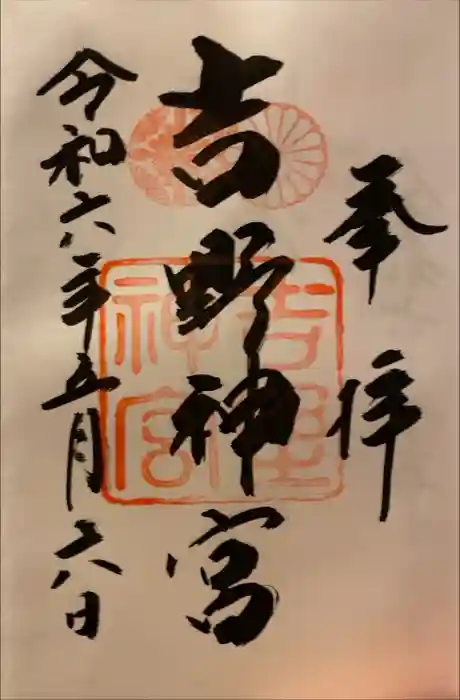 奉拝
吉野神宮
令和六年五月六日
吉野
神宮